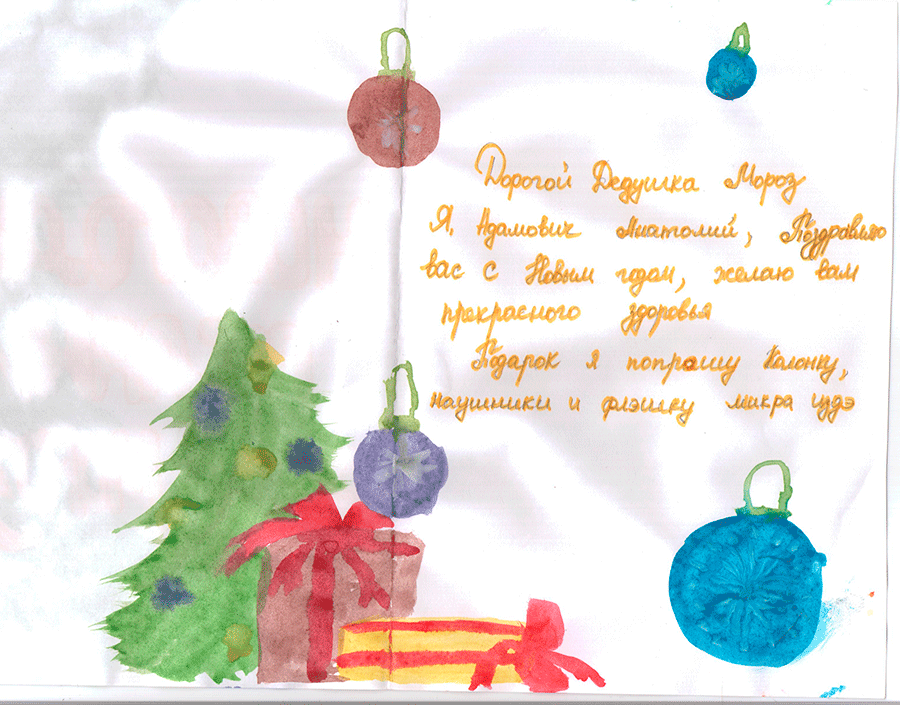 Дорогой Дедушка Мороз
Я, Адамович Анатолий, Поздравляю
вас с Новым годом, желаю вам
прекрасного здоровья
Подарок я попрашу Колонку,
наушники и флэшку микра сдэ